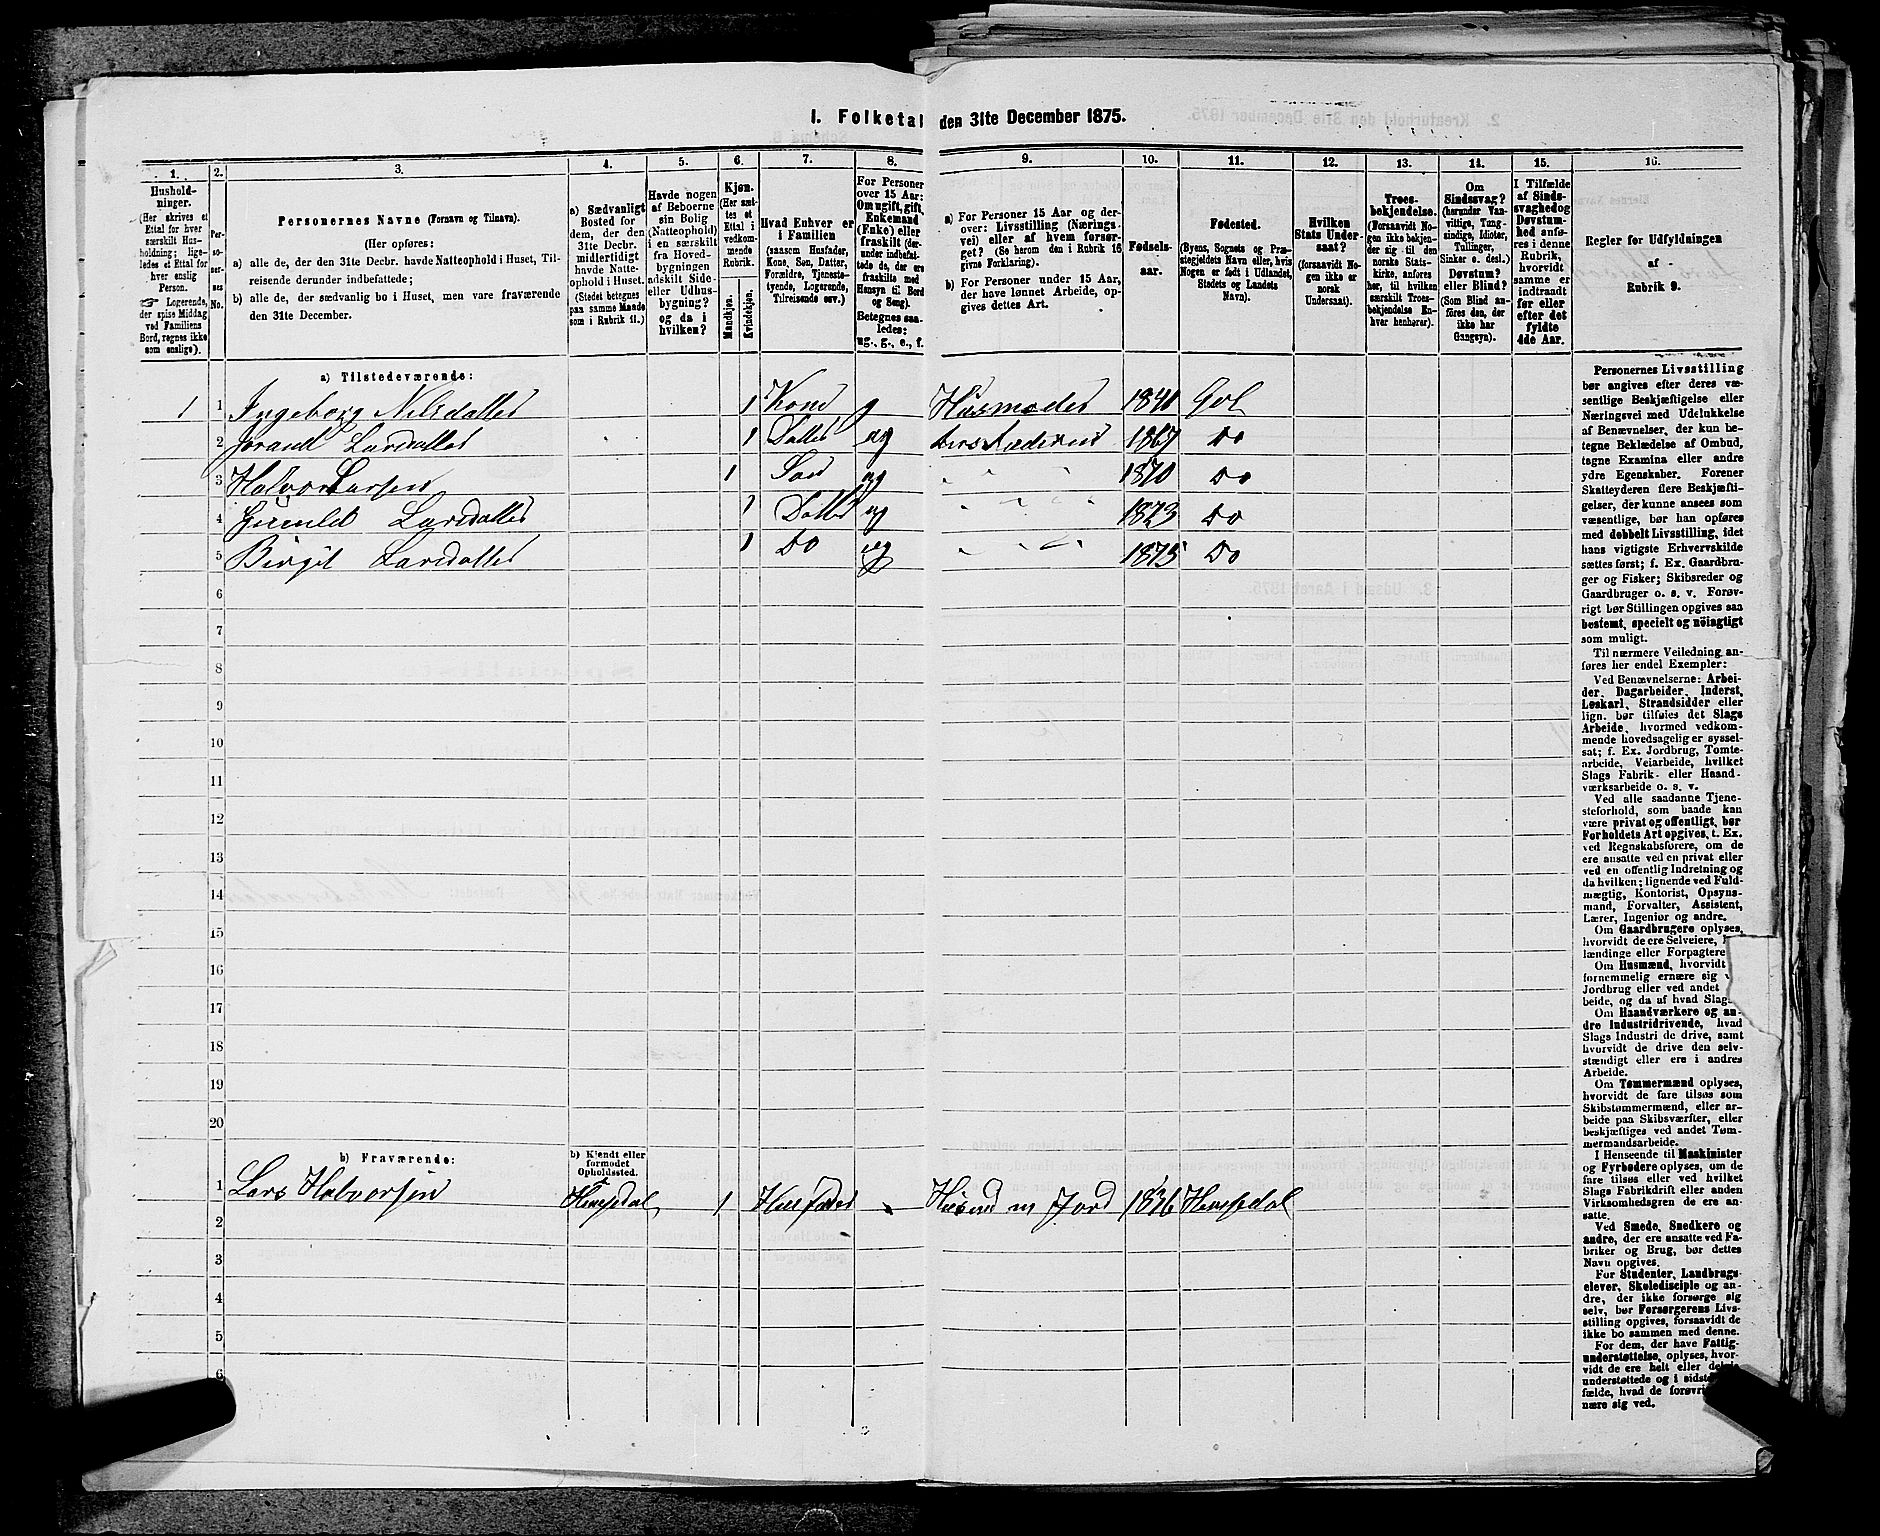 I. Folketal den 31te December 1875.
1. 2. 3. 4. 5. 6. 7. 8. 9. 10. 11. 12. 13. 14. 15. 16.
Hushold-
ninger.
(Her skrives et
Ettal for hver
særskilt Hus-
holdning; lige-
ledes et Ettal for
hver enslig
Person.
☞ Logerende,
der spise Middag
ved Familiens
Bord, regnes ikke
som enslige).
Per-
so-
ner-
nes
No.
Personernes Navne (Fornavn og Tilnavn).
(Her opføres:
a) alle de, der den 31te Decbr. havde Natteophold i Huset, Til-
reisende derunder indbefattede;
b) alle de, der sædvanlig bo i Huset, men vare fraværende
den 31te December.
a) Sædvanligt
Bosted for
dem, der den
31te Decbr.
midlertidigt
havde Natte-
ophold i Huset.
(Stedet betegnes
paa samme Maade
som i Rubrik 11.)
Havde nogen
af Beboerne
sin Bolig
(Natteophold)
i en særskilt
fra Hoved-
bygningen
adskilt Side-
eller Udhus-
bygning?
og da i
hvilken?
Kjøn.
(Her sæt-
tes et
Ettal i
vedkom-
mende
Rubrik.
Mandkjøn.
Kvindekjøn.
Hvad Enhver er
i Familien
(saasom Husfader,
Kone, Søn, Datter,
Forældre, Tjeneste-
tyende, Logerende,
Tilreisende osv.)
For Personer
over 15 Aar:
Om ugift, gift,
Enkemand
(Enke) eller
fraskilt (der-
under indbefat-
tede de, der ere
fraskilte med
Hensyn til Bord
og Seng).
Betegnes saa-
ledes:
ug., g., e., f.
a) For Personer 15 Aar og der-
over: Livsstilling (Nærings-
vei) eller af hvem forsør-
get? (Se herom den i Rubrik 16
givne Forklaring).
b) For Personer under 15 Aar,
der have lønnet Arbeide, op-
gives dettes Art.
Fødsels-
aar.
Fødested.
(Byens, Sognets og Præ-
stegjeldets Navn eller, hvis
Nogen er født i Udlandet,
Stedets og Landets
Navn).
Hvilken
Stats Under-
saat?
(forsaavidt No-
gen ikke er
norsk
Undersaat).
Troes-
bekjendelse.
(Forsaavidt No-
gen ikke bekjen-
der sig til den
norske Stats-
kirke, her anføres,
til hvilken
særskilt Troes-
bekjendelse En-
hver henhører).
Om
Sindssvag?
(herunder Van-
vittige, Tung-
sindige, Idioter,
Tullinger,
Sinker o. desl.)
Døvstum?
eller Blind?
(Som Blind an-
føres den, der
ikke har
Gangsyn).
I Tilfælde
af Sinds-
svaghed og
Døvstum-
hed anfø-
res i denne
Rubrik,
hvorvidt
samme er
indtraadt
før eller
efter det
fyldte
4de Aar.
Regler for Udfyldningen
af
Rubrik 9.
a) Tilstedeværende:
1 1 Ingeborg Nilsdatter 1 Kone g Husmoder 1840 Gol
2 Jorand Larsdatter 1 Datter ug 1867 Do
3 Halvor Larsen 1 Søn ug " " 1870 Do
4 Gunild Larsdatter 1 Datter ug " " 1873 Do
5 Birgit Larsdatter 1 Do ug " " 1875 Do
6
7
8
9
10
11
12
13
14
15
16
17
18
19
20
b) Fraværende:
b) Kjendt eller
formodet
Opholdssted.
1 Lars Halvorsen Hemsedal 1 Husfader Husmd m Jord 1836 Hemsedal
2
3
4
5
6
Personernes Livsstilling
bør angives efter deres væ-
sentlige Beskjæftigelse eller
Næringsvei med Udelukkelse
af Benævnelser, der kun be-
tegne Beklædelse af Ombud,
tagne Examina eller andre
ydre Egenskaber. Forener
Skatteyderen flere Beskjæfti-
gelser, der kunne ansees som
væsentlige, bør han opføres
med dobbelt Livsstilling, idet
hans vigtigste Erhvervskilde
sættes først; f. Ex. Gaardbru-
ger og Fisker; Skibsreder og
Gaardbruger o. s. v. Forøv-
rigt bør Stillingen opgives saa
bestemt, specielt og nøiagtigt
som muligt.
Til nærmere Veiledning an-
føres her endel Exempler:
Ved Benævnelserne: Arbei-
der, Dagarbeider, Inderst,
Løskarl, Strandsidder eller
lign. bør tilføies det Slags
Arbeide, hvormed vedkom-
mende hovedsagelig er syssel-
sat; f. Ex. Jordbrug, Tomte-
arbeide, Veiarbeide, hvilket
Slags Fabrik- eller Haand-
værksarbeide o. s. v.
Ved alle saadanne Tjene-
steforhold, som baade kan
være privat og offentligt, bør
Forholdets Art opgives, t. Ex.
ved Regnskabsførere, om de
ere ansatte ved en privat eller
ved en offentlig Indretning og
da hvilken; lignende ved Fuld-
mægtig, Kontorist, Opsyns-
mand, Forvalter, Assistent,
Lærer, Ingeniør og andre.
Om Gaardbrugere oplyses,
hvorvidt de ere Selveiere,
lændinge eller Forpagtere
Om Husmænd, hvorvidt
fornemmelig ernære sig
Jordbrug eller ved andet
beide, og da af hvad Slags
Om Haandværkere og an-
dre Industridrivende, hvad
Slags Industri de drive, samt
hvorvidt de drive den selv-
stændigt eller ere i andres
Arbeide.
Om Tømmermænd oplyses,
hvorvidt de fare tilsøs som
Skibstømmermænd, eller ar-
beide paa Skibsværfter, eller
beskjæftiges ved andet Tøm-
mermandsarbeide.
I Henseende til Maskinister
og Fyrbødere oplyses, om de
fare tilsøs eller ved hvilket
Slags Fabrikdrift eller anden
Virksomhedsgren de ere an-
satte.
Ved Smede, Snedkere og
andre, der ere ansatte ved Fa-
briker og Brug, bør dettes
Navn opgives.
For Studenter, Landbrugs-
elever, Skoledisciple og an-
dre, der ikke forsørge sig
selv, bør Forsørgerens Livs-
stilling opgives, forsaavidt de
ikke bo sammen med denne.
For dem, der have Fattig-
understøttelse, oplyses, hvor-
vidt de ere helt eller
understøttede og i sidste
fælde, hvad de
nære sig ved.